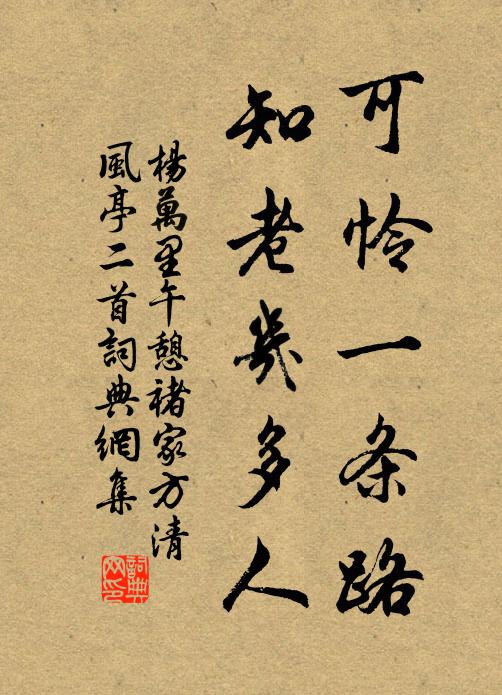 可怜一条路
知老几多人
楊萬里午憩褚家方清
風亭二首詞典網集
詞典
网印